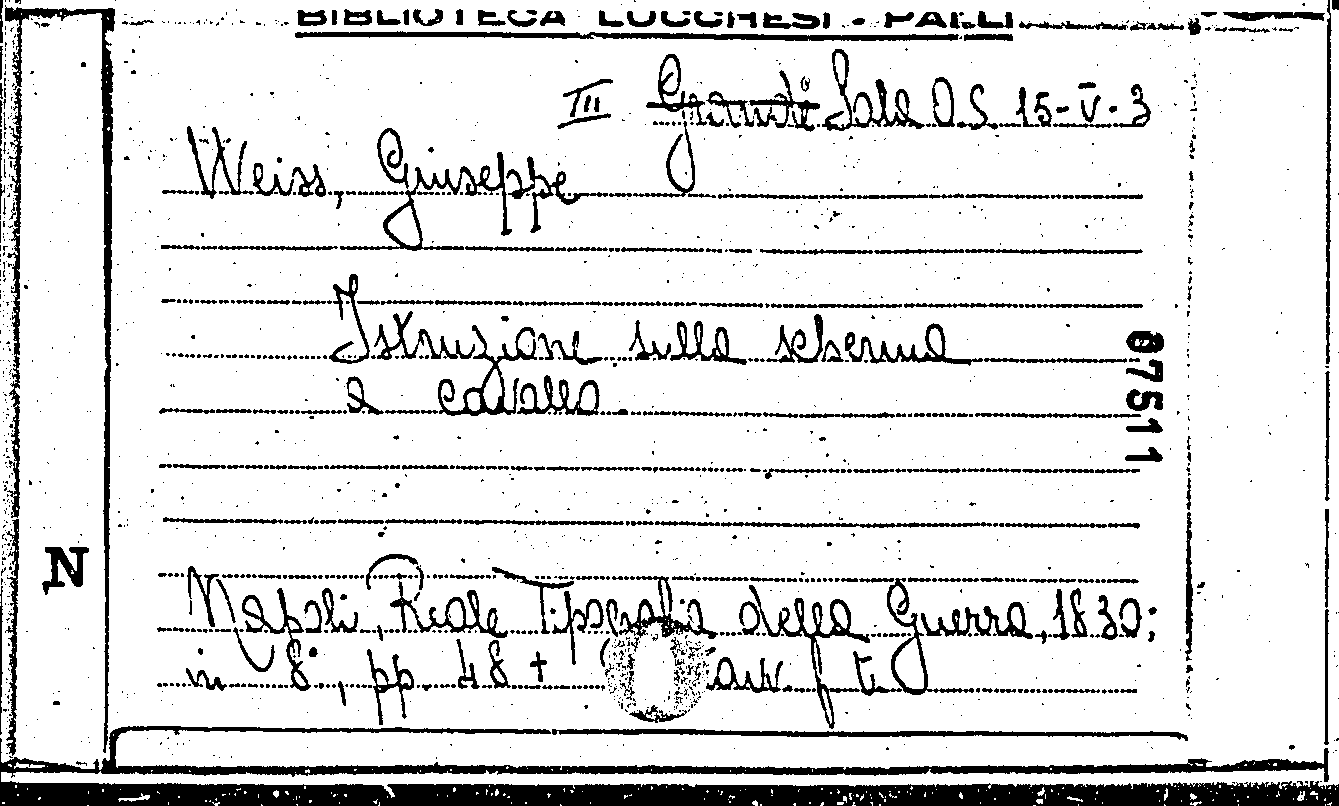 BIBLIOTECA LUCCHESI - PALLI
III Grande Sala O.S. 15-V-3
Weiss, Giuseppe
Istruzione sulla scherma
a cavallo.
87511
N
Napoli, Reale Tipografia della Guerra, 1830;
in 8°, pp. 48 + tav. f. t.